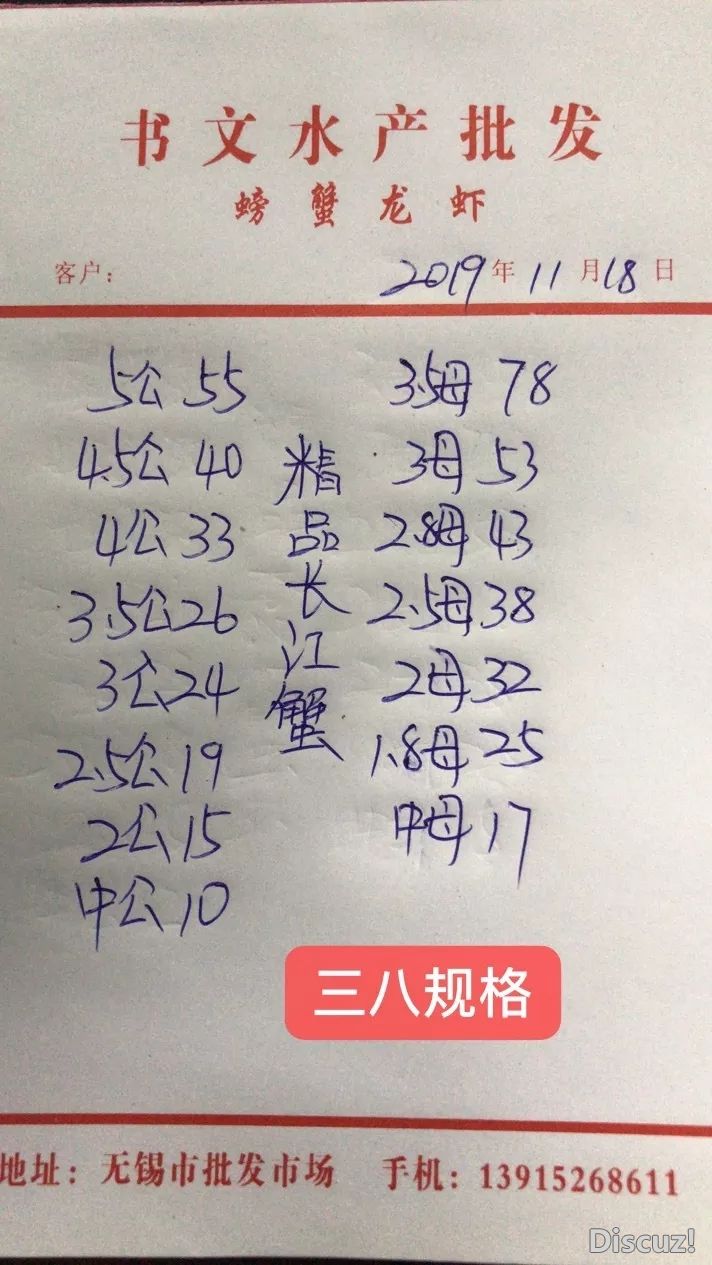 书文水产批发
螃蟹龙虾
客户: 2019年11月18日
5公 55
4.5公 40
4公 33
3.5公 26
3公 24
2.5公 19
2公 15
中公 10
精品长江蟹
3.5母 78
3母 53
2.8母 43
2.5母 38
2母 32
1.8母 25
中母 17
三八规格
地址: 无锡市批发市场 手机: 13915268611
Discuz!